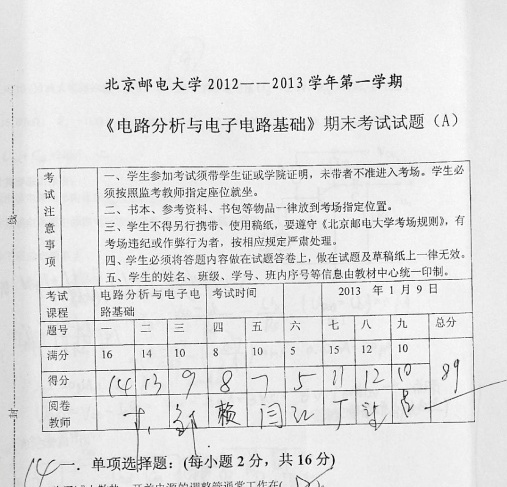 北京邮电大学2012——2013学年第一学期
《电路分析与电子电路基础》期末考试试题（A）
考试注意事项
一、学生参加考试须带学生证或学院证明，未带者不准进入考场。学生必
须按照监考教师指定座位就坐。
二、书本、参考资料、书包等物品一律放到考场指定位置。
三、学生不得另行携带、使用稿纸，要遵守《北京邮电大学考场规则》，有
考场违纪或作弊行为者，按相应规定严肃处理。
四、学生必须将答题内容做在试题答卷上，做在试题及草稿纸上一律无效。
五、学生的姓名、班级、学号、班内序号等信息由教材中心统一印制。
考试课程 电路分析与电子电路基础 考试时间 2013 年 1 月 9 日
题号 一 二 三 四 五 六 七 八 九 总分
满分 16 14 10 8 10 5 15 12 10
得分 14 13 9 8 7 5 11 12 10 89
阅卷教师 赖 闫 丁
14 一．单项选择题：(每小题 2 分，共 16 分)